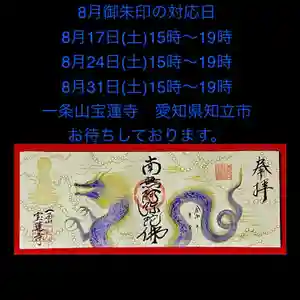 8月御朱印の対応日
8月17日(土)15時〜19時
8月24日(土)15時〜19時
8月31日(土)15時〜19時
一条山宝蓮寺　愛知県知立市
お待ちしております。
奉拝
南無阿弥陀佛
宝蓮寺